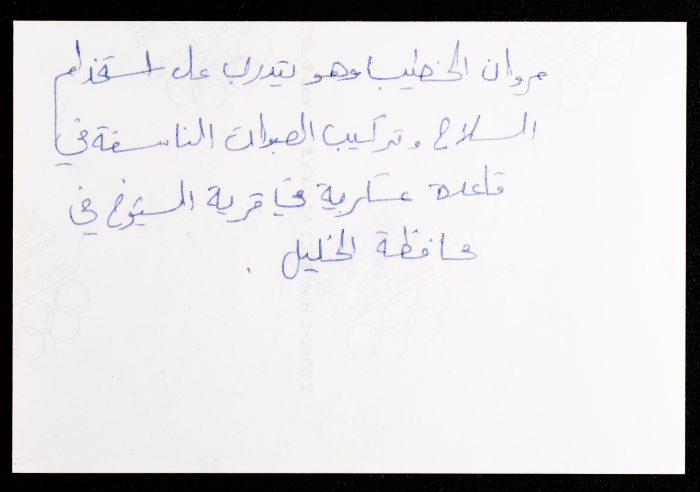 مروان الخطيب وهو يتدرب على استخدام
السلاح وتركيب العبوات الناسفة في
قاعدة عسكرية في قرية الشيوخ في
محافظة الخليل .